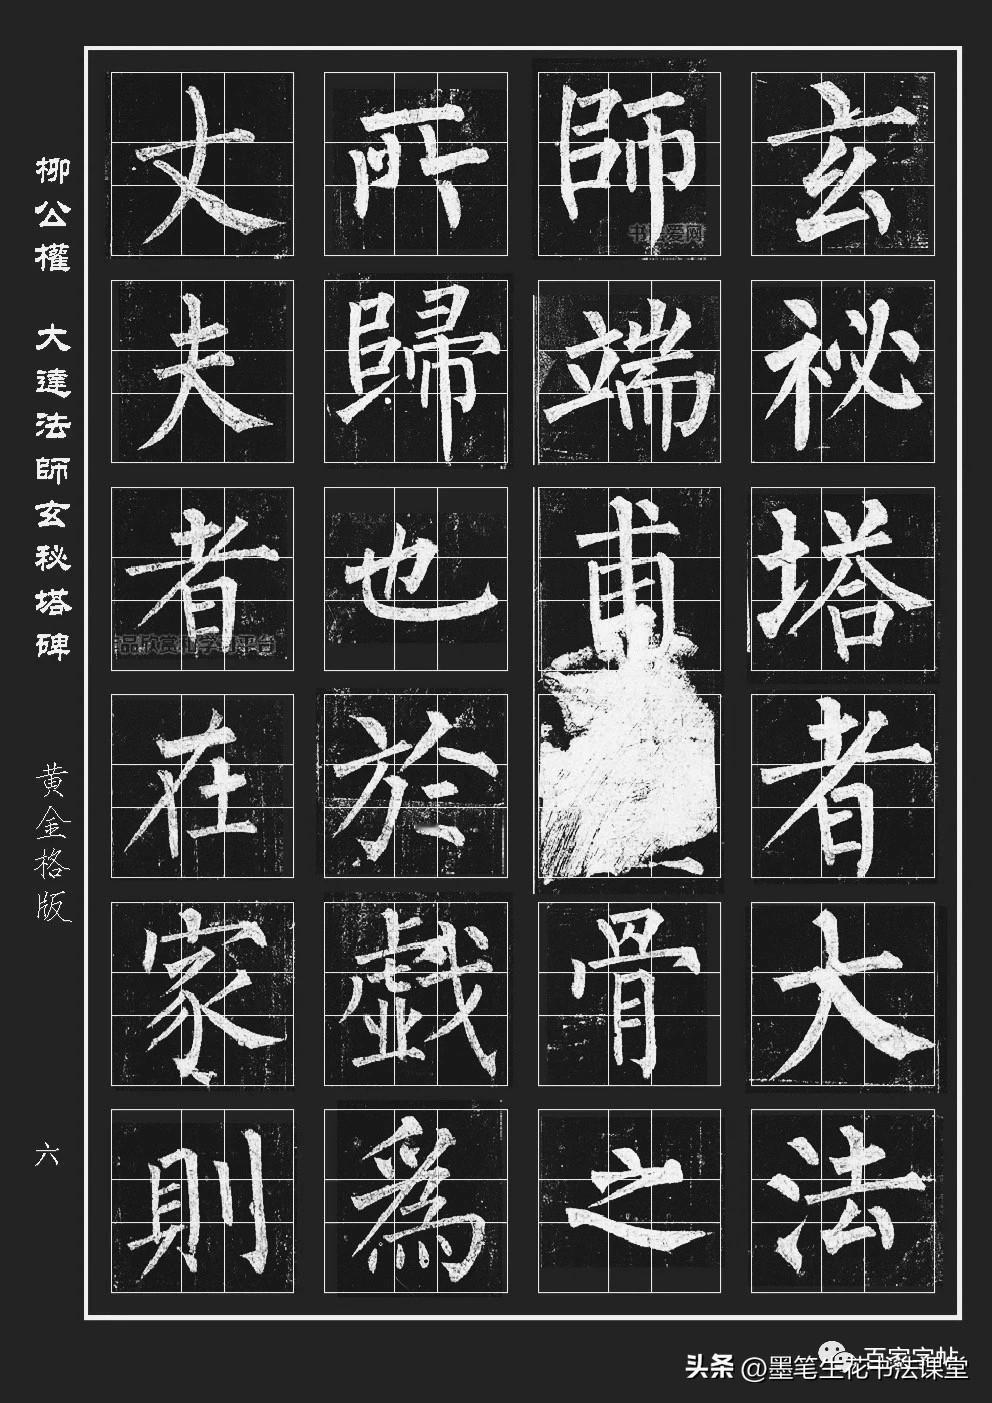 玄秘塔者大法
師端甫骨之
所歸也於戲為
丈夫者在家則
柳公權 大達法師玄秘塔碑
黄金格版
六
品欣赏和学习平台
百家字帖
头条 @墨笔生花书法课堂